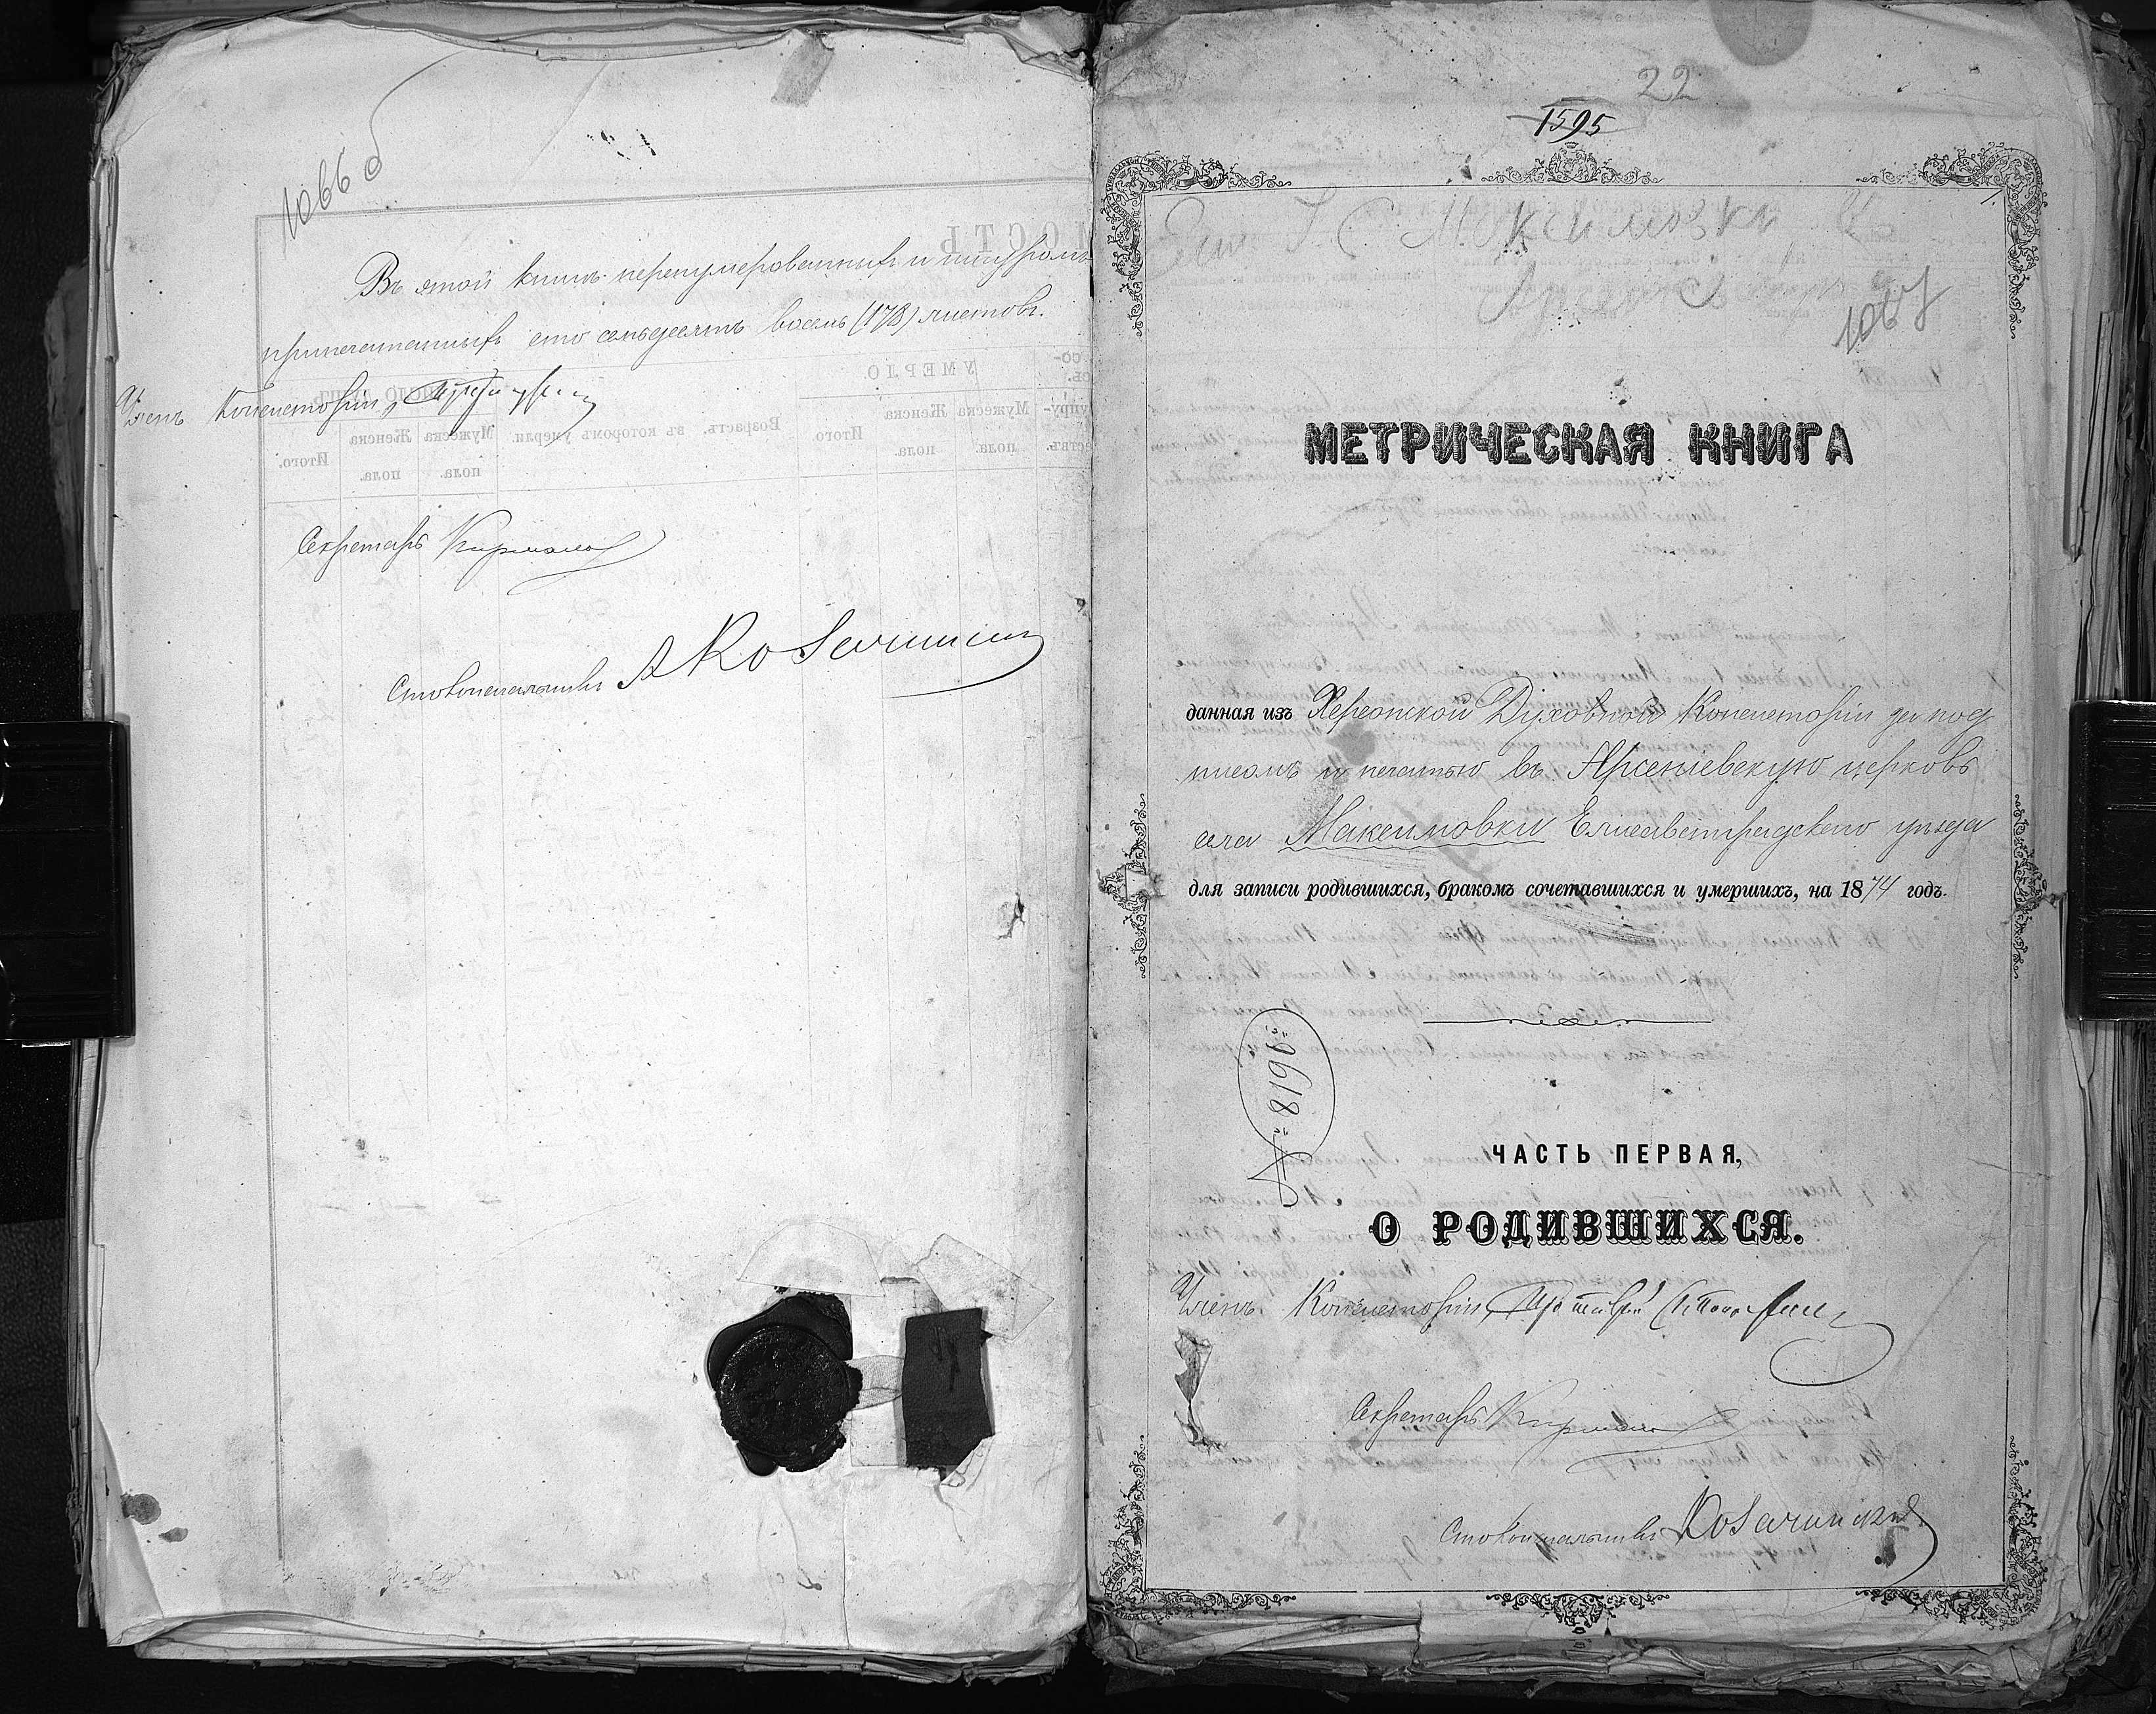 1066 об
Въ этой книгѣ перенумерованныхъ и шнуромъ
припечатанныхъ сто семьдесятъ восемь (178) листовъ.
Членъ Консисторіи, Протоіерей
Секретарь
Столоначальникъ А Косачинскій
22
1595
Ел. у. с. Максимовки
1067
МЕТРИЧЕСКАЯ КНИГА
данная изъ Херсонской Духовной Консисторіи за под
писомъ и печатью въ Арсеніевскую церковь
села Максимовки Елисаветградскаго уѣзда
для записи родившихся, бракомъ сочетавшихся и умершихъ, на 1874 годъ.
39618
ЧАСТЬ ПЕРВАЯ,
О РОДИВШИХСЯ.
Членъ Консисторіи, Протоіерей
Секретарь
Столоначальникъ Косачинскій